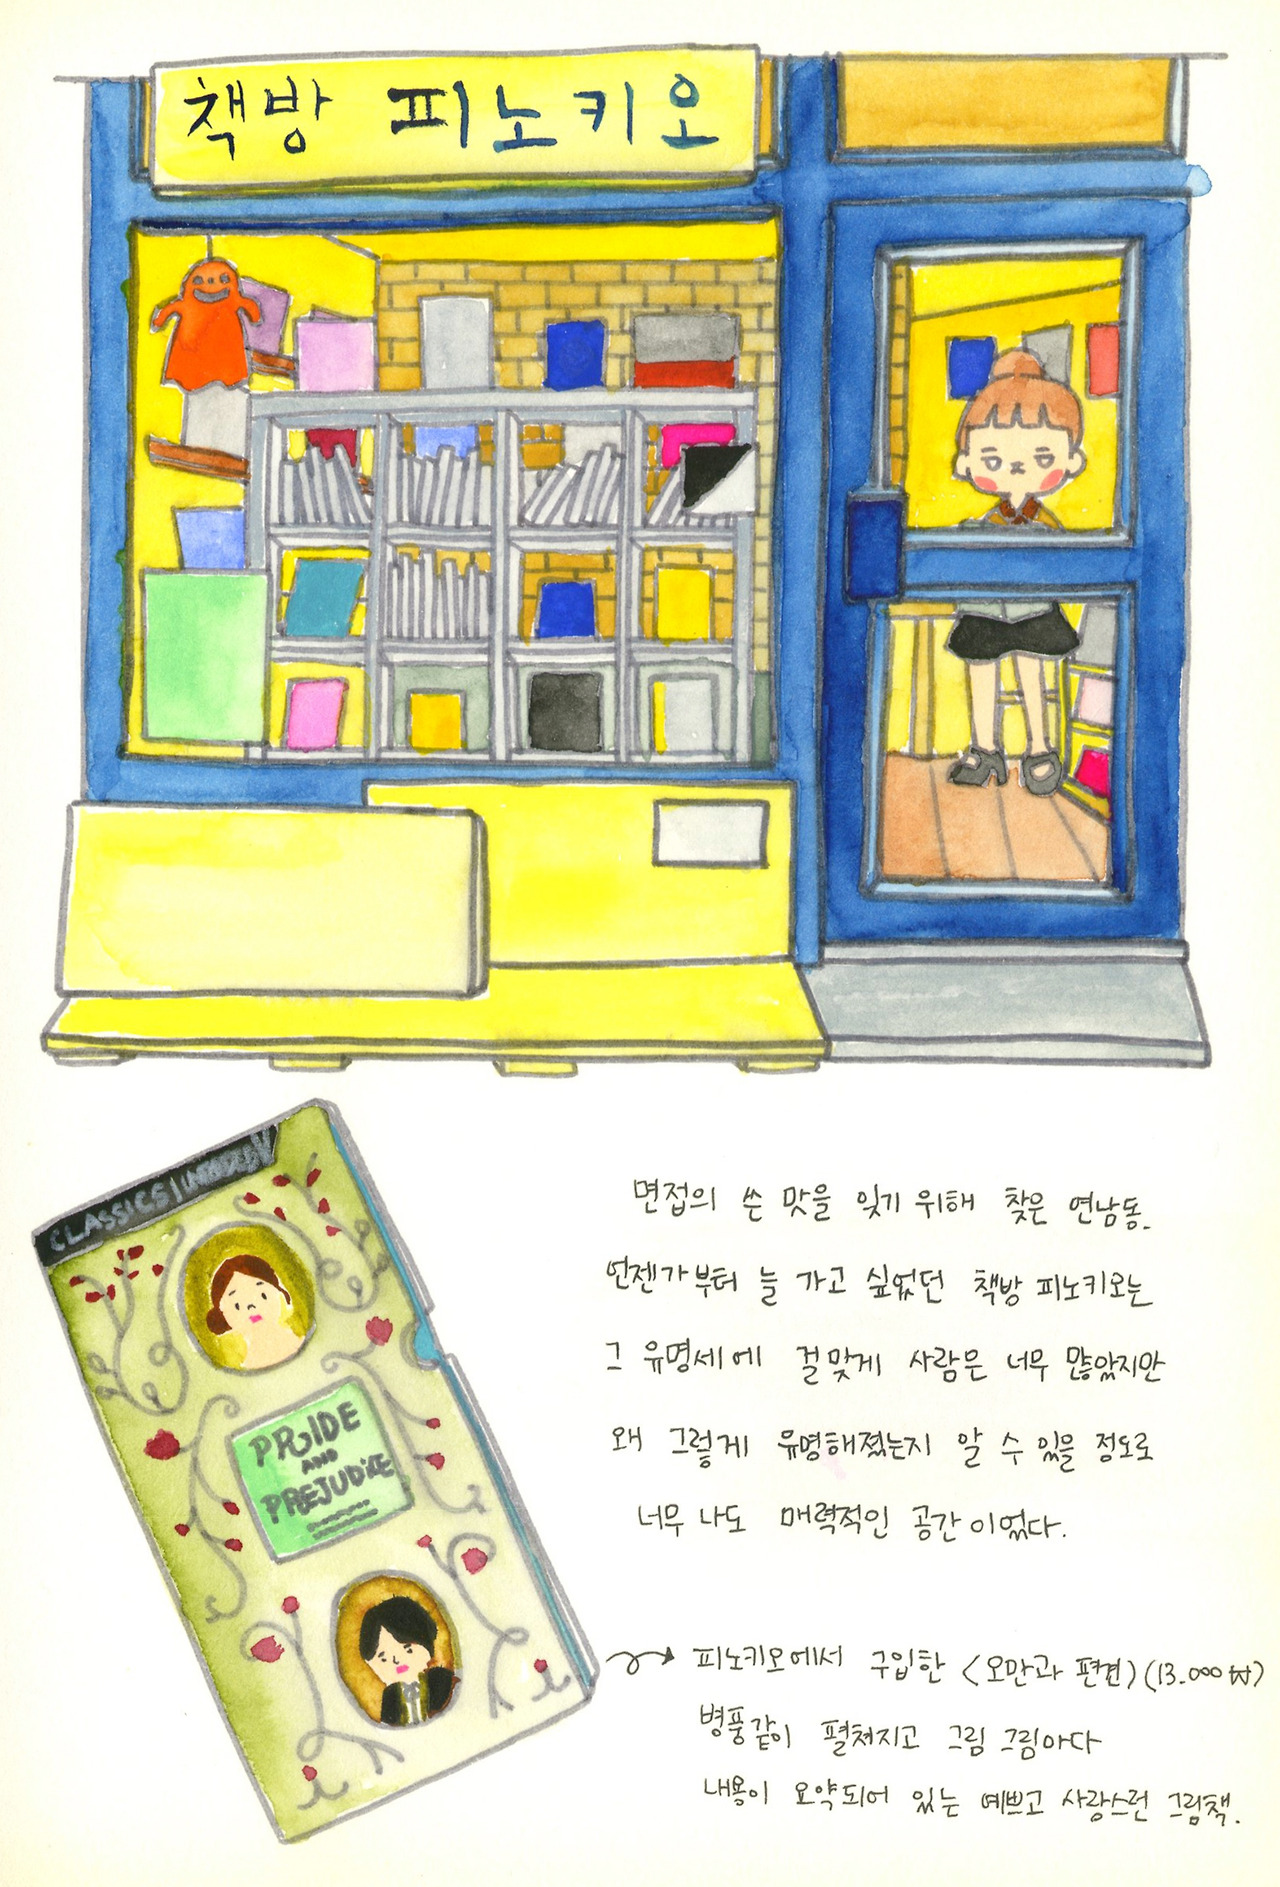 책방 피노키오
CLASSICS
PRIDE
AND
PREJUDICE
면접의 쓴 맛을 잊기 위해 찾은 연남동.
언젠가부터 늘 가고 싶었던 책방 피노키오는
그 유명세에 걸맞게 사람은 너무 많았지만
왜 그렇게 유명해졌는지 알 수 있을 정도로
너무나도 매력적인 공간이었다.
피노키오에서 구입한 <오만과 편견> (13.000₩)
병풍같이 펼쳐지고 그림 그림마다
내용이 요약되어 있는 예쁘고 사랑스런 그림책.